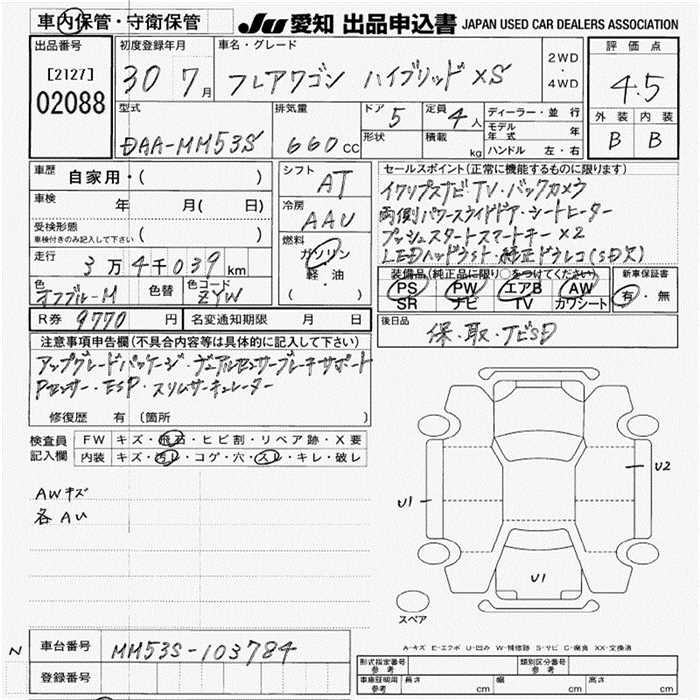 車内保管・守衛保管
JU 愛知 出品申込書 JAPAN USED CAR DEALERS ASSOCIATION
出品番号
[2127]
02088
初度登録年月
30 7月
車名・グレード
フレアワゴン ハイブリッド XS
2WD
・
4WD
評価点
4.5
外装 内装
B B
型式
DAA-MM53S
排気量
660cc
ドア 5
形状
定員 4人
積載 kg
ディーラー・並行
モデル年式 年
ハンドル 左・右
車歴 自家用・( )
車検 年 月( 日)
受検形態
車検付きのみ記入して下さい ( )
走行 3万4千039km
色 オフブルーM 色替 色コード ZYW
シフト AT
冷房 AAU
燃料 ガソリン
軽・油
( )
セールスポイント(正常に機能するものに限ります)
イクリプスナビ・TV・バックカメラ
両側パワースライドドア・シートヒーター
プッシュスタートスマートキー×2
LEDヘッドライト・純正ドラレコ(SD欠)
装備品(純正品に限り○をつけてください)
PS PW エアB AW
SR ナビ TV カワシート
新車保証書
有・無
R券 9770円 名変通知期限 月 日
後日品 保・取・ナビSD
注意事項申告欄(不具合内容等は具体的に記入して下さい)
アップグレードパッケージ・デュアルセンサーブレーキサポート
Pセンサー・ESP・スリムサーキュレーター
修復歴 有 (箇所 )
検査員
記入欄
FW キズ・飛石・ヒビ割・リペア跡・X要
内装 キズ・汚レ・コゲ・穴・スレ・キレ・破レ
AWキズ
各AU
U1
U2
U1
スペア
A-キズ E-エクボ U-凹み W-補修跡 S-サビ C-腐食 XX-交換済
N
車台番号 MM53S-103784
登録番号
形式指定番号 参考
類別区分番号 参考
車庫証明用 参考 長さ cm 幅 cm 高さ cm